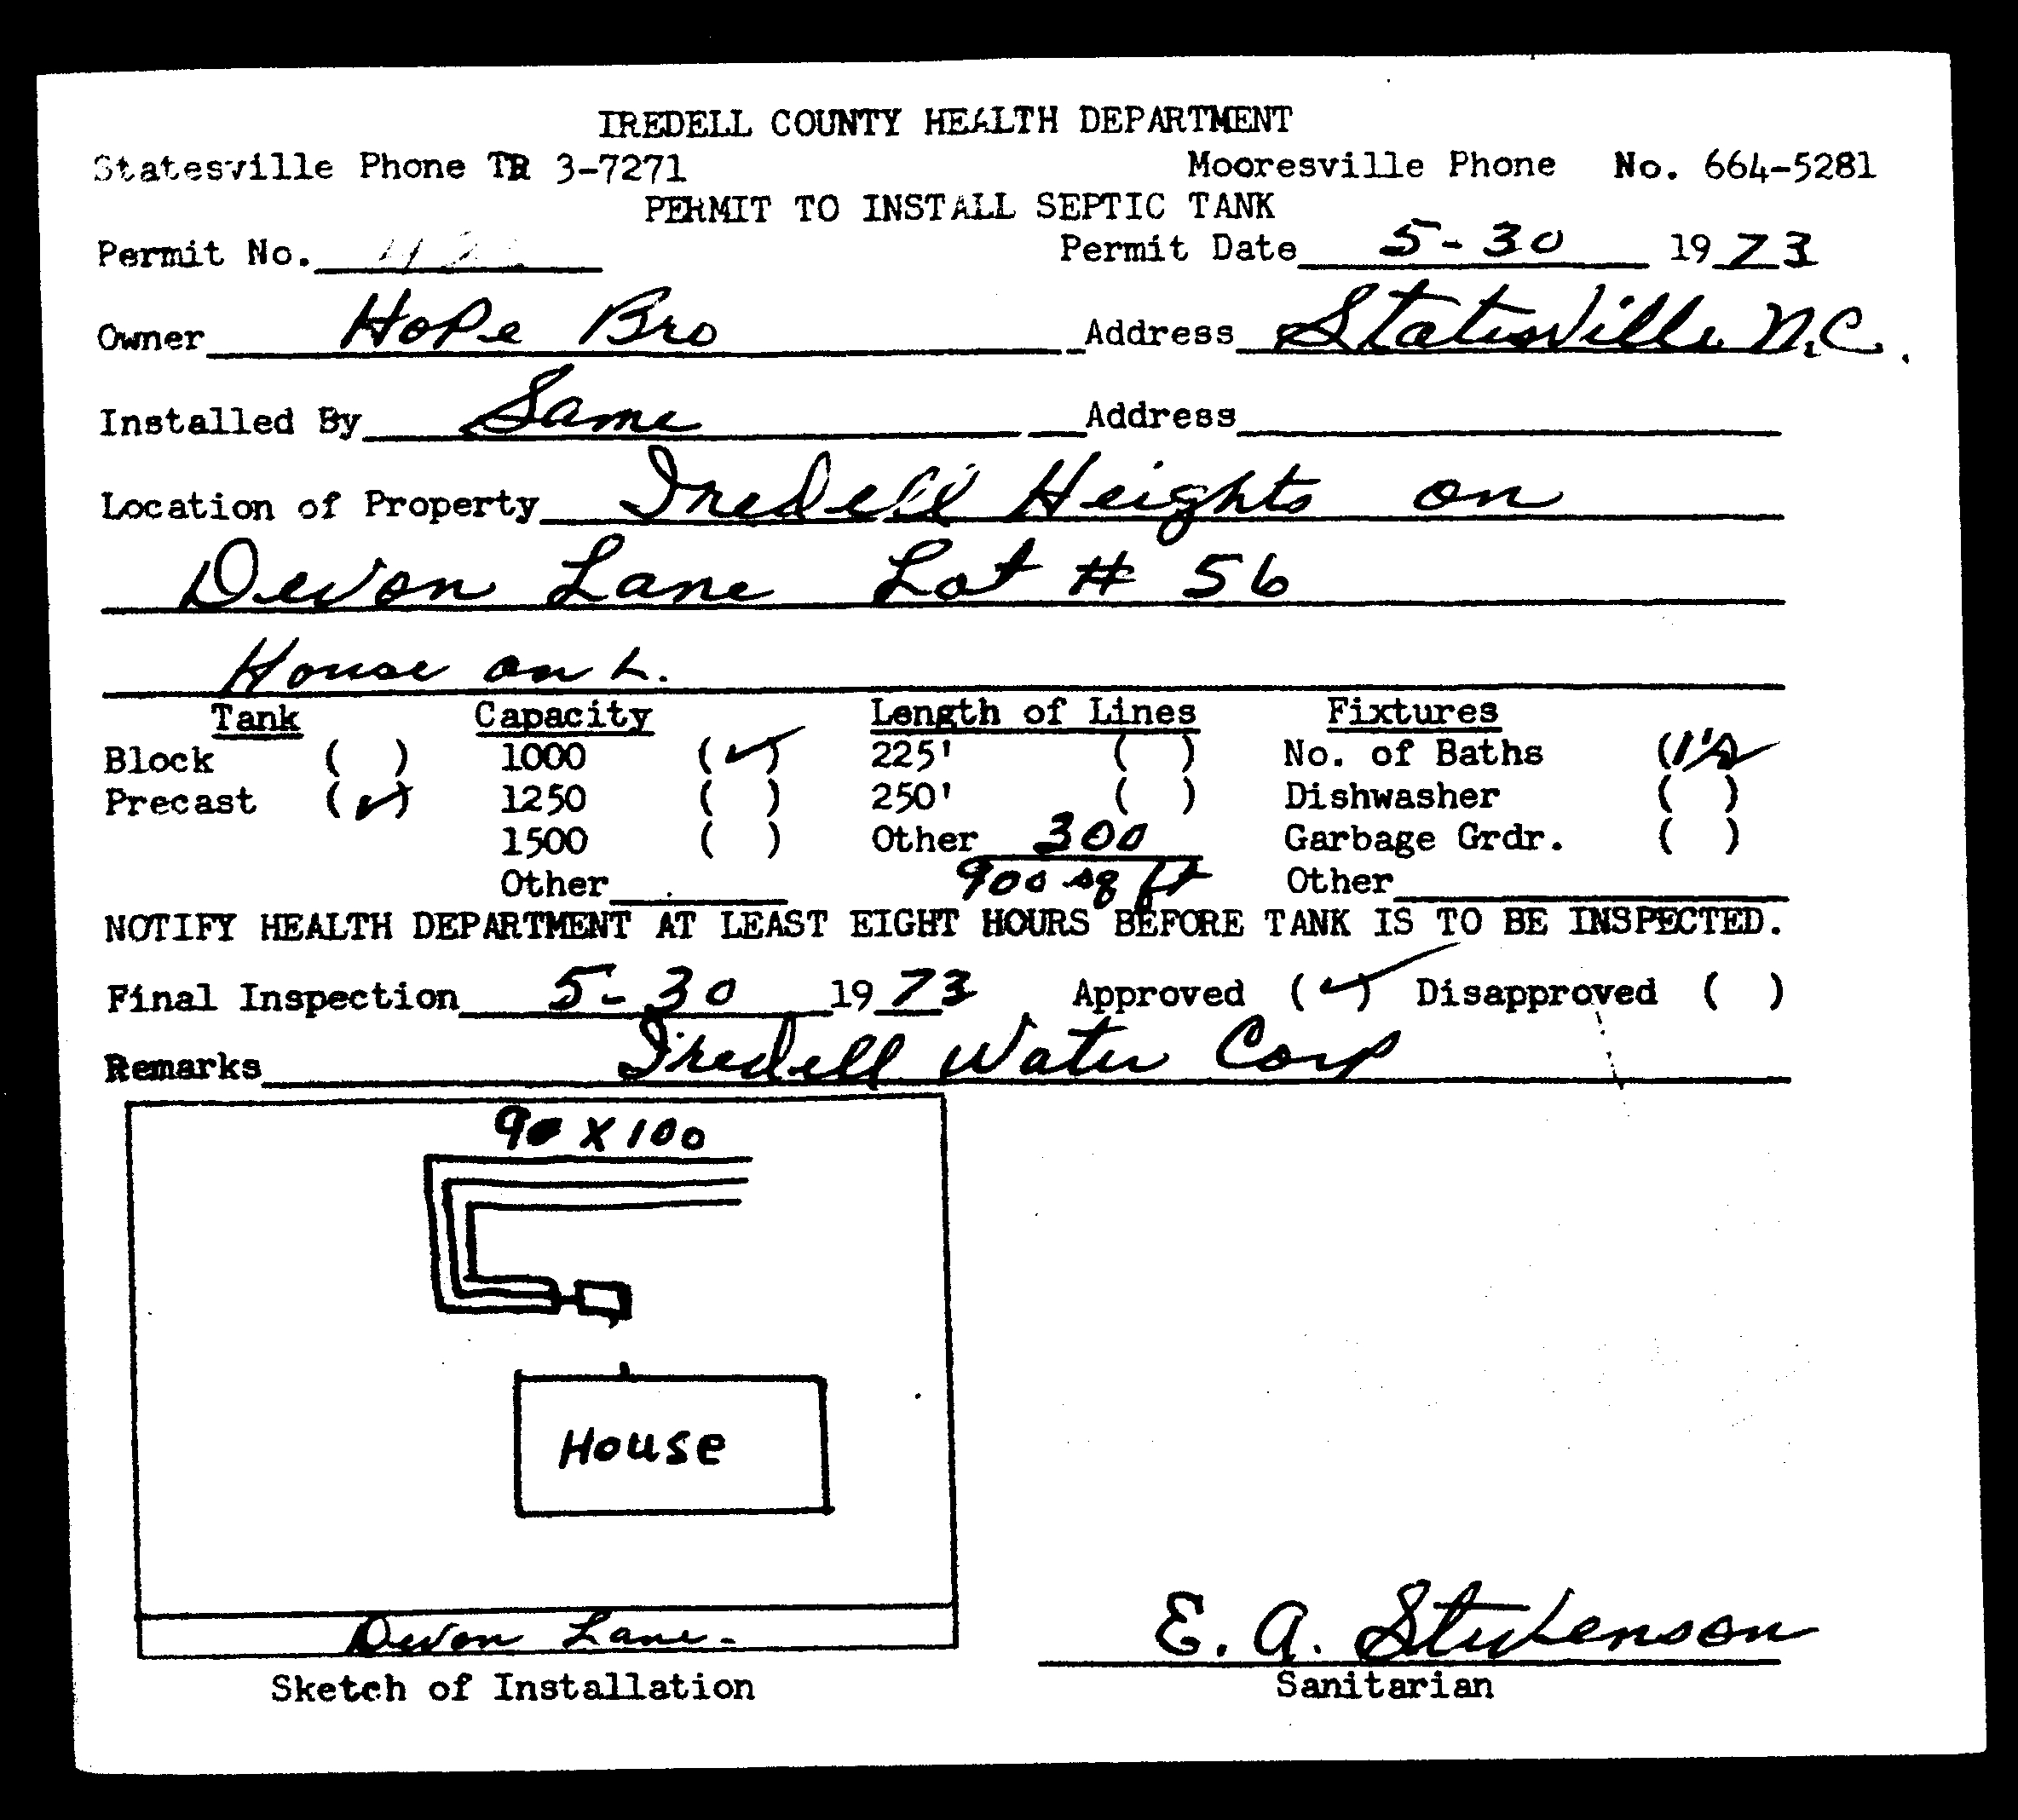 IREDELL COUNTY HEALTH DEPARTMENT
Statesville Phone TR 3-7271 Mooresville Phone No. 664-5281
PERMIT TO INSTALL SEPTIC TANK
Permit No. Permit Date 5-30 1973
Owner Hope Bro Address Statesville N.C.
Installed By Same Address
Location of Property Iredell Heights on
Devon Lane Lot # 56
House on L.
Tank Capacity Length of Lines Fixtures
Block ( ) 1000 (✓) 225' ( ) No. of Baths (
Precast (✓) 1250 ( ) 250' ( ) Dishwasher ( )
1500 ( ) Other 300 Garbage Grdr. ( )
Other 900 sq ft Other
NOTIFY HEALTH DEPARTMENT AT LEAST EIGHT HOURS BEFORE TANK IS TO BE INSPECTED.
Final Inspection 5-30 1973 Approved (✓) Disapproved ( )
Remarks Iredell Water Corp
90 X 100
House
Devon Lane.
Sketch of Installation
E. A. Stevenson
Sanitarian